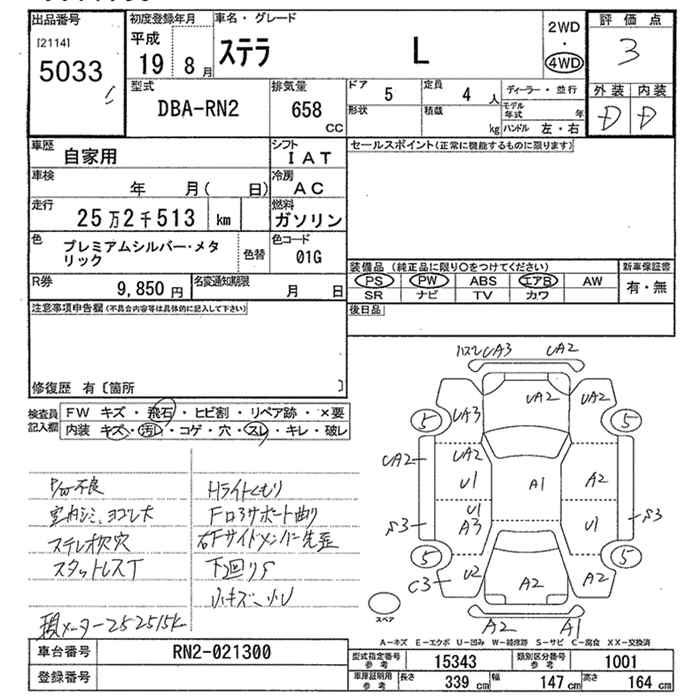 出品番号
[2114]
5033
初度登録年月
平成
19 8月
車名・グレード
ステラ L
2WD
・
4WD
評価点
3
外装 内装
D D
型式
DBA-RN2
排気量
658
CC
ドア 5
定員 4 人
形状
積載 kg
ディーラー・並行
モデル年式 年
ハンドル 左・右
車歴
自家用
シフト
IAT
車検 年 月( 日)
冷房
AC
走行
25万2千513 km
燃料
ガソリン
色
プレミアムシルバー・メタリック
色替
色コード
01G
R券 9,850円
名変通知期限 月 日
セールスポイント(正常に機能するものに限ります)
装備品 (純正品に限り○をつけてください)
PS PW ABS エアB AW
SR ナビ TV カワ
新車保証書
有・無
後日品
注意事項申告欄(不具合内容等は具体的に記入して下さい)
修復歴 有〔箇所 〕
検査員記入欄
FW キズ・飛石・ヒビ割・リペア跡・×要
内装 キズ・汚レ・コゲ・穴・スレ・キレ・破レ
P/W不良
室内シミ、ヨゴレ大
ステレオ欠穴
スタットレスT
積メーター252515K
Hライトくもり
Fロアサポート曲り
右Fサイドメンバー先歪
下回りS
小キズ、小U
UA3 UA2
5 UA3 UA2 UA2 5
UA2 UA2 U1 A1 A2
S3 U1 A3 U1 S3
5 5
C3 U2 A2 A2
スペア
A2 A1
A－キズ E－エクボ U－凹み W－補修跡 S－サビ C－腐食 XX－交換済
車台番号 RN2-021300
登録番号
型式指定番号 参考 15343
類別区分番号 参考 1001
車庫証明用 参考 長さ 339 cm 幅 147 cm 高さ 164 cm